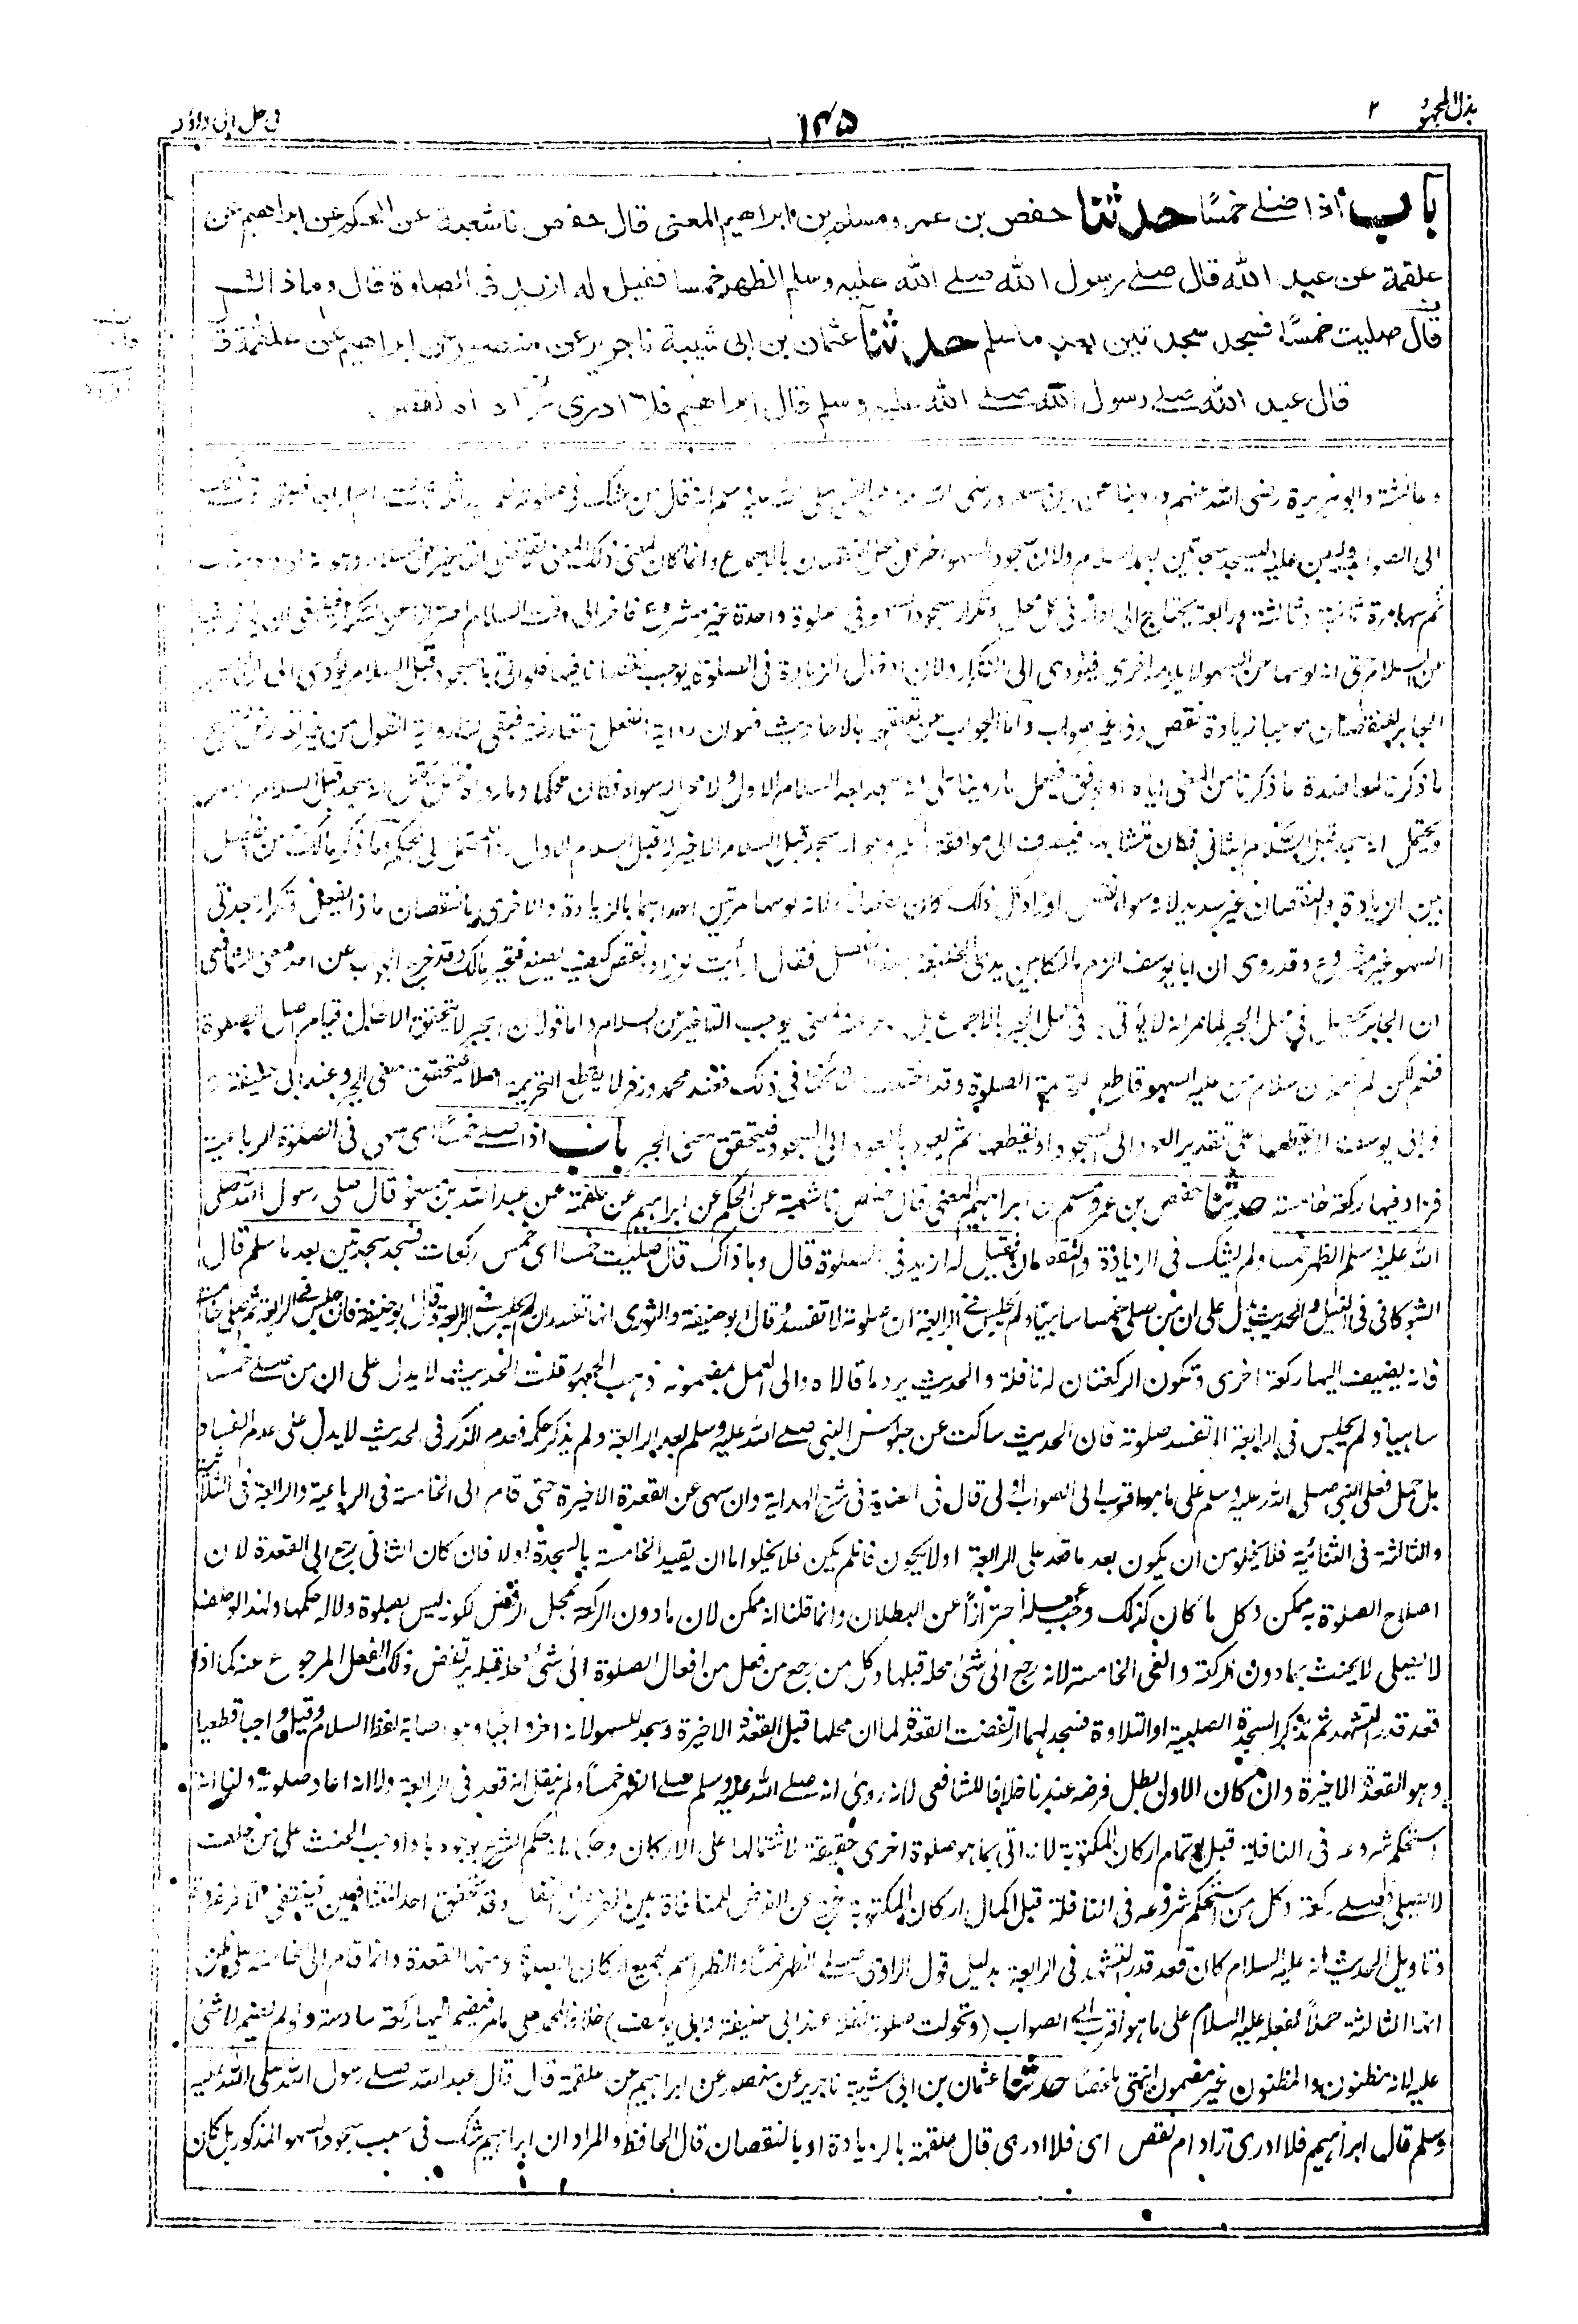 بذل المجهود ٢ ١٤٥ في حل ابي داؤد
باب اذا صلى خمسًا حدثنا حفص بن عمر ومسلم بن ابراهيم المعنى قال حفص نا شعبة عن الحكم عن ابراهيم عن
علقمة عن عبد الله قال صلى رسول الله صلى الله عليه وسلم الظهر خمسا فقيل له ازيد في الصلوة قال وما ذاك
قال صليت خمسًا فسجد سجدتين بعد ما سلم حدثنا عثمان بن ابي شيبة نا جرير عن منصور عن ابراهيم عن علقمة
قال عبد الله صلى رسول الله صلى الله عليه وسلم قال ابراهيم فلا ادرى زاد ام نقص
وعائشة وابو هريرة رضى الله عنهم وروينا عن ابن مسعود رضى الله عنه عن النبي صلى الله عليه وسلم انه قال من شك في صلوته فلم يدر
الى الصواب وليبن عليه وليسجد سجدتين بعد السلام ولان سجود السهو اخر عن محل النقصان بالاجماع وانما كان لمعنى ذلك المعنى يقتضى التاخير عن السلام
ثم سها مرة ثانية وثالثة ورابعة يحتاج الى ادائه في كل محل وتكرار سجود السهو في صلوة واحدة غير مشروع فاخر الى وقت السلام احترازا عن التكرار فينبغي ان يؤخر
عن السلام حتى انه لو سها عن السهو لا يلزمه اخرى فيؤدى الى التكرار ولان ادخال الزيادة في الصلوة يوجب نقصانا فيها فلو اتى بالسجود قبل السلام يؤدى الى ان
الجابر للنقصان موجبا زيادة نقص وذا غير صواب واما الجواب عن تعلقهم بالاحاديث فهو ان رواية الفعل متعارضة فبقى لنا رواية القول من غير تعارض
ما ذكرنا لمعاضدة ما ذكرنا من المعنى اياه او يوفق فيحمل ما روينا على انه سجد بعد السلام الاول ولا محمل له سواه فكان محكما وما رواه محتمل يحتمل انه سجد قبل السلام
ويحتمل انه سجد قبل السلام الثاني فكان متشابها فيصرف الى موافقة المحكم وهو انه سجد قبل السلام الاخير لا قبل السلام الاول ردا للمحتمل الى المحكم وما ذكر مالك من الفصل
بين الزيادة والنقصان غير سديد لانه سواء نقص او زاد كل ذلك كان نقصانا ولانه لو سها مرتين احداهما بالزيادة والاخرى بالنقصان ماذا يفعل وتكرار سجدتي
السهو غير مشروع وقد روى ان ابا يوسف الزم مالكا بين يدى الخليفة بهذا الفصل فقال ارأيت لو زاد ونقص كيف يصنع فتحير مالك وقد خرج الجواب عن احد معنى الشافعي
ان الجابر يحصل في محل الجبر لما مر انه لا يؤتى به في محل الجبر بالاجماع بل يؤخر عنه لمعنى يوجب التاخير عن السلام واما قوله ان الجبر لا يتحقق الا حال قيام اصل الصلوة
فنعم لكن لم قلتم ان سلام من عليه السهو قاطع لتحريمة الصلوة وقد اختلف مشائخنا في ذلك فعند محمد وزفر لا يقطع التحريمة اصلا فيتحقق معنى الجبر وعند ابي حنيفة
وابي يوسف لا يقطعها على تقدير العود الى السجود او يقطعها ثم يعود بالعود الى السجود فيتحقق معنى الجبر باب اذا صلى خمسًا اى سها في الصلوة الرباعية
فزاد فيها ركعة خامسة حدثنا حفص بن عمر ومسلم بن ابراهيم المعنى قال حفص نا شعبة عن الحكم عن ابراهيم عن علقمة عن عبد الله بن مسعود قال صلى رسول الله صلى
الله عليه وسلم الظهر خمسا ولم يشك في الزيادة والنقصان فقيل له ازيد في الصلوة قال وما ذاك قال صليت خمسا اى خمس ركعات فسجد سجدتين بعد ما سلم قال
الشوكاني في النيل والحديث يدل على ان من صلى خمسا ساهيا ولم يجلس في الرابعة ان صلوته لا تفسد وقال ابو حنيفة والثوري انها تفسد ان لم يجلس في الرابعة وقال ابو حنيفة فان جلس في الرابعة ثم صلى خامسة
فانه يضيف اليها ركعة اخرى وتكون الركعتان له نافلة والحديث يرد ما قالاه والى العمل بمضمونه ذهب الجمهور قلت الحديث لا يدل على ان من صلى خمسا
ساهيا ولم يجلس في الرابعة لا تفسد صلوته فان الحديث ساكت عن جلوس النبي صلى الله عليه وسلم بعد الرابعة ولم يذكر حكمه فعدم الذكر في الحديث لا يدل على عدم الفساد
بل حمل فعل النبي صلى الله عليه وسلم على ما هو اقرب الى الصواب اولى قال في العناية في شرح الهداية وان سهى عن القعدة الاخيرة حتى قام الى الخامسة في الرباعية والرابعة في الثلاثية
والثالثة في الثنائية فلا يخلو من ان يكون بعد ما قعد على الرابعة اولا يكون فان لم يكن فلا يخلو اما ان يقيد الخامسة بالسجدة اولا فان كان الثاني رجع الى القعدة لان
اصلاح الصلوة به ممكن وكل ما كان كذلك وجب فعله احترازًا عن البطلان وانما قلنا انه ممكن لان ما دون الركعة بمحل الرفض لكونه ليس بصلوة ولا له حكمها ولهذا لو حلف
لا يصلى لا يحنث بما دون الركعة والغى الخامسة لانه رجع الى شئ محله قبلها وكل من رجع من فعل من افعال الصلوة الى شئ محله قبله يرتفض ذلك الفعل المرجوع عنه كما اذا
قعد قدر التشهد ثم تذكر السجدة الصلبية او التلاوة فسجد لهما ارتفضت القعدة لما ان محلها قبل القعدة الاخيرة وسجد للسهو لانه اخر واجبا وهو اصابة لفظ السلام وقيل واجبا قطعيا
وهو القعدة الاخيرة وان كان الاول بطل فرضه عندنا خلافا للشافعي لانه روى انه صلى الله عليه وسلم صلى الظهر خمسًا ولم ينقل انه قعد في الرابعة ولا انه اعاد صلوته ولنا انه
استحكم شروعه في النافلة قبل اتمام اركان المكتوبة لانه اتى بما هو صلوة اخرى حقيقة لاشتمالها على الاركان وحكما لحكم الشرع بوجودها واوجب الحنث على من حلف
لا يصلى فصلى ركعة وكل من استحكم شروعه في النافلة قبل اكمال اركان المكتوبة خرج عن الفرض للمنافاة بين الفرض والنفل وقد تحقق احد المتنافيين فينتفي الاخر ضرورة
وتاويل الحديث انه عليه السلام كان قعد قدر التشهد في الرابعة بدليل قول الراوى صلى الظهر خمسًا والظهر اسم لجميع اركان الصلوة ومنها القعدة وانما قام الى الخامسة على ظن
انها الثالثة حملاً لفعله عليه السلام على ما هو اقرب الى الصواب (وتحولت صلوته نفلا عند ابي حنيفة وابي يوسف) خلافا لمحمد على ما مر فيضم اليها ركعة سادسة ولو لم يضم لا شئ
عليه لانه مظنون والمظنون غير مضمون انتهى ملخصًا حدثنا عثمان بن ابي شيبة نا جرير عن منصور عن ابراهيم عن علقمة قال قال عبد الله صلى رسول الله صلى الله عليه
وسلم قال ابراهيم فلا ادرى زاد ام نقص اى فلا ادرى قال علقمة بالزيادة او بالنقصان قال الحافظ والمراد ان ابراهيم شك في سبب سجود السهو المذكور بل كان